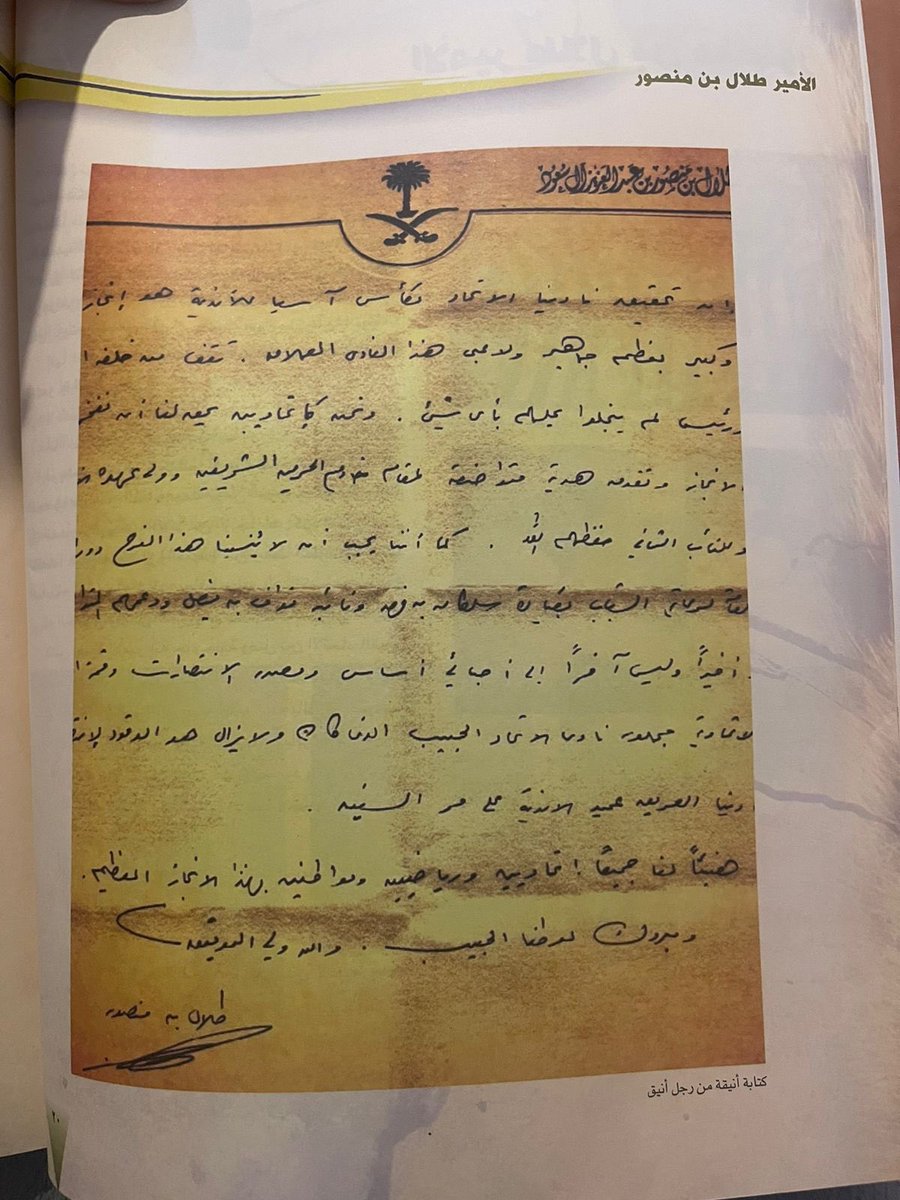 الأمير طلال بن منصور
طلال بن منصور بن عبد العزيز آل سعود
إن تحقيق نادينا الاتحاد لكأس آسيا للأندية هو إنجاز
وكبير بعظم جماهير ولاعبي هذا النادي العملاق . تقف من خلفه ا
ورئيس لم يبخلوا عليهم بأي شيئ . ونحن كإتحاديين يحق لنا أن نفخر
الانجاز ونقدمه هدية متواضعة لمقام خادم الحرمين الشريفين وولي عهده
وللنائب الثاني حفظهم الله . كما أننا يجب أن لا ينسينا هذا الفرح دور
لرعاية الشباب بقيادة سلطان بن فهد ونائبه نواف بن فيصل ودعمهم
أخيراً وليس آخراً إلى أحبائي أساس ومصدر الانتصارات وقمة ا
الاتحادية جمهور نادي الاتحاد الحبيب الذي كان ولا يزال هو الوقود
دينا العريق عميد الاندية على مر السنين .
هنيئاً لنا جميعاً اتحاديين ورياضيين ومواطنين بهذا الانجاز العظيم .
ومبروك لوطننا الحبيب . والله ولي التوفيق
طلال بن منصور
كتابة أنيقة من رجل أنيق
٢٠